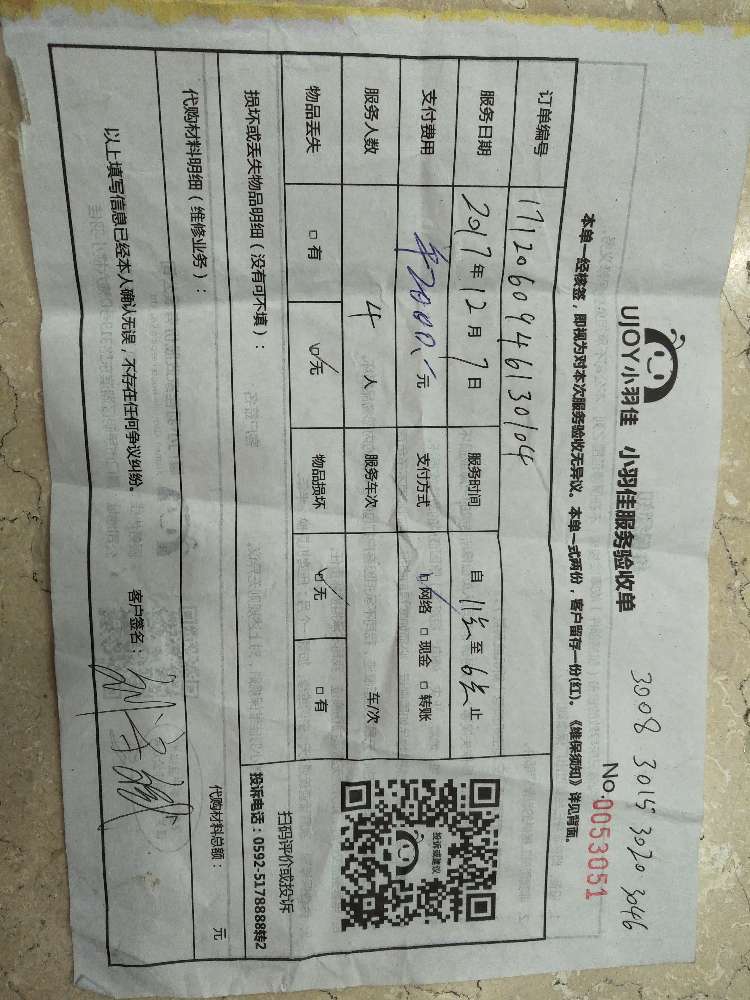 3008 3015 3020 3046
UJOY小羽佳 小羽佳服务验收单
No.0053051
本单一经核签，即视为对本次服务验收无异议。本单一式两份，客户留存一份(红)。《维保须知》详见背面。
订单编号 1712060946130104
服务日期 2017年12月7日 服务时间 自 11 至 6 止
支付费用 2000. 元 支付方式 ☑网络 □现金 □转账
服务人数 4 人 服务车次 车/次
物品丢失 □有 ☑无 物品损坏 ☑无 □有
投诉或建议
扫码评价或投诉
损坏或丢失物品明细（没有可不填）：
投诉电话：0592-5178888转2
代购材料明细（维修业务）：
代购材料总额： 元
以上填写信息已经本人确认无误，不存在任何争议纠纷。 客户签名：